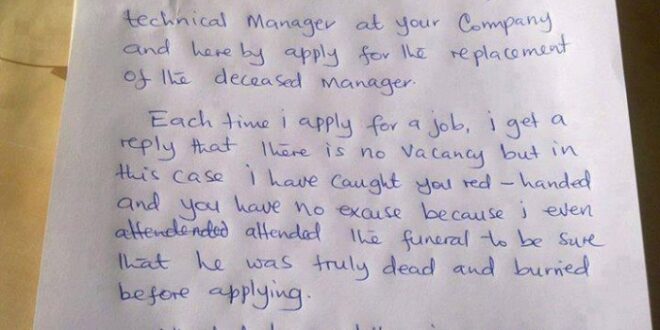 technical Manager at your Company
and here by apply for the replacement
of the deceased manager.
Each time i apply for a job, i get a
reply that there is no vacancy but in
this case i have caught you red-handed
and you have no excuse because i even
attendended attended the funeral to be sure
that he was truly dead and burried
before applying.